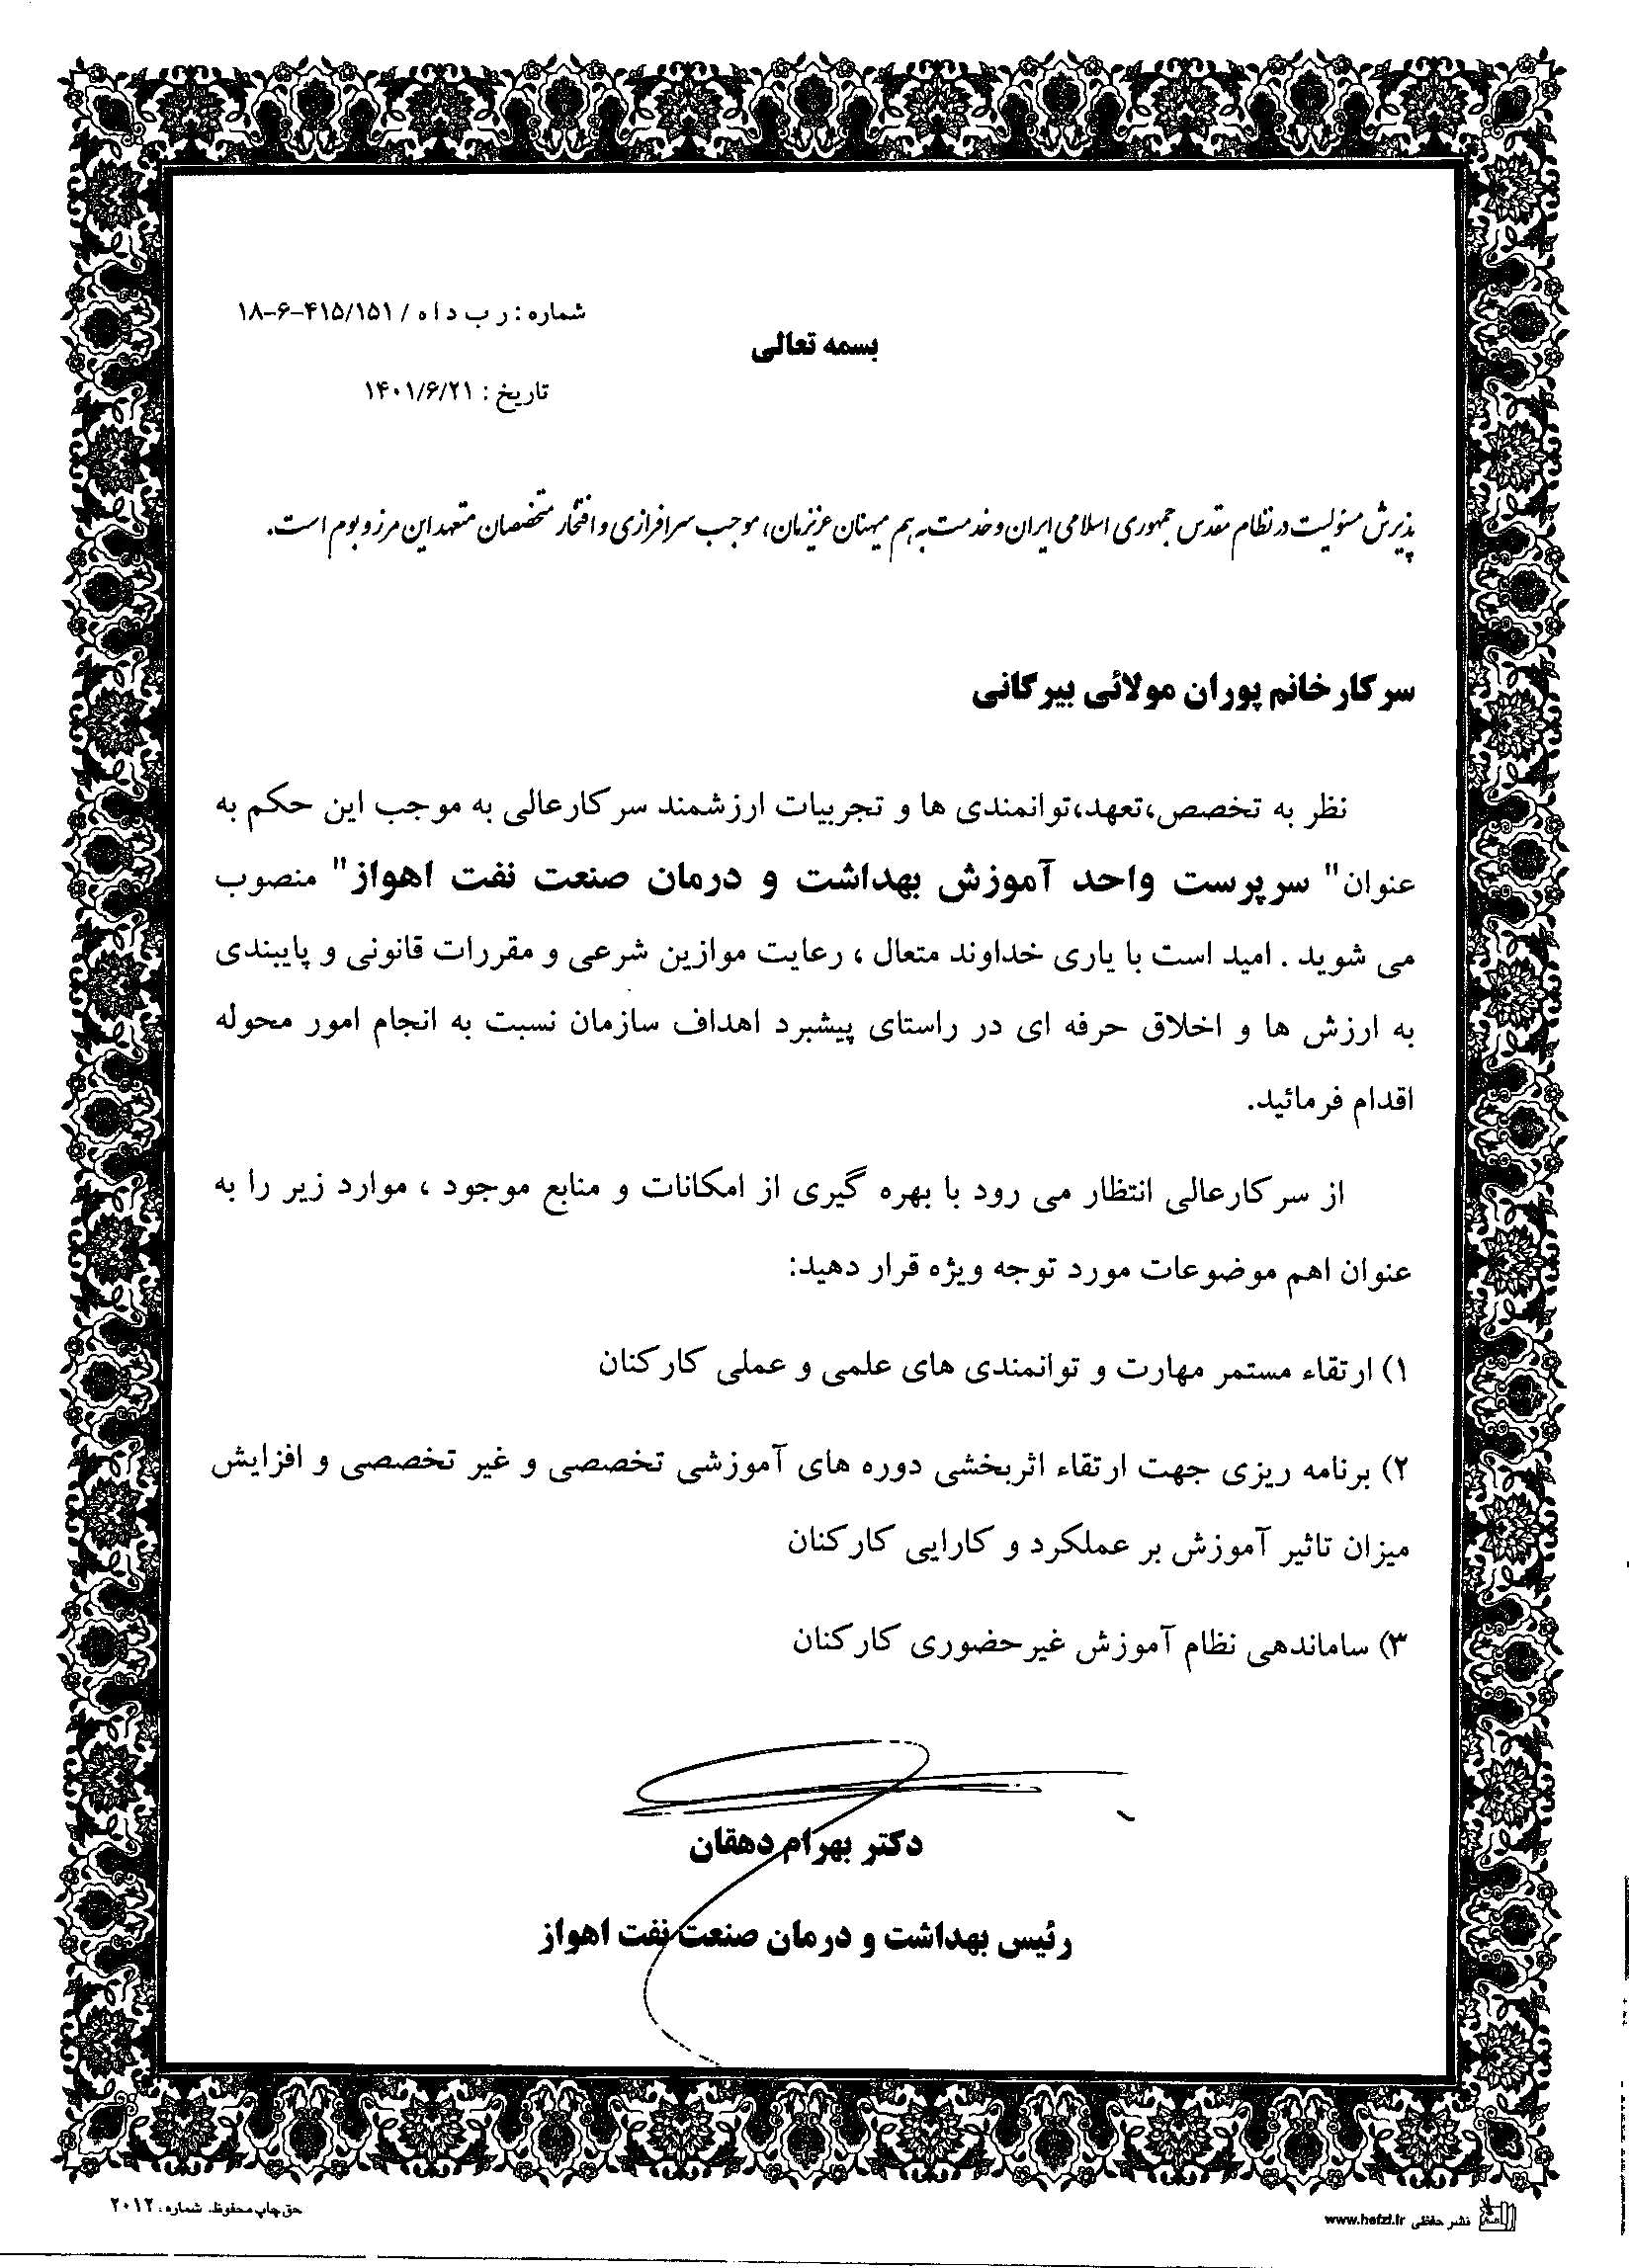 شماره : ر ب د ا ه / ۴۱۵/۱۵۱-۶-۱۸
بسمه تعالی
تاریخ : ۱۴۰۱/۶/۲۱
پذیرش مسئولیت در نظام مقدس جمهوری اسلامی ایران و خدمت به هم میهنان عزیزمان، موجب سرافرازی و افتخار متخصصان متعهد این مرز و بوم است.
سرکارخانم پوران مولائی بیرگانی
نظر به تخصص،تعهد،توانمندی ها و تجربیات ارزشمند سرکارعالی به موجب این حکم به
عنوان" سرپرست واحد آموزش بهداشت و درمان صنعت نفت اهواز" منصوب
می شوید . امید است با یاری خداوند متعال ، رعایت موازین شرعی و مقررات قانونی و پایبندی
به ارزش ها و اخلاق حرفه ای در راستای پیشبرد اهداف سازمان نسبت به انجام امور محوله
اقدام فرمائید.
از سرکارعالی انتظار می رود با بهره گیری از امکانات و منابع موجود ، موارد زیر را به
عنوان اهم موضوعات مورد توجه ویژه قرار دهید:
۱) ارتقاء مستمر مهارت و توانمندی های علمی و عملی کارکنان
۲) برنامه ریزی جهت ارتقاء اثربخشی دوره های آموزشی تخصصی و غیر تخصصی و افزایش
میزان تاثیر آموزش بر عملکرد و کارایی کارکنان
۳) ساماندهی نظام آموزش غیرحضوری کارکنان
دکتر بهرام دهقان
رئیس بهداشت و درمان صنعت نفت اهواز
نشر حفظی www.hefzi.ir
حق چاپ محفوظ. شماره: ۲۰۱۲